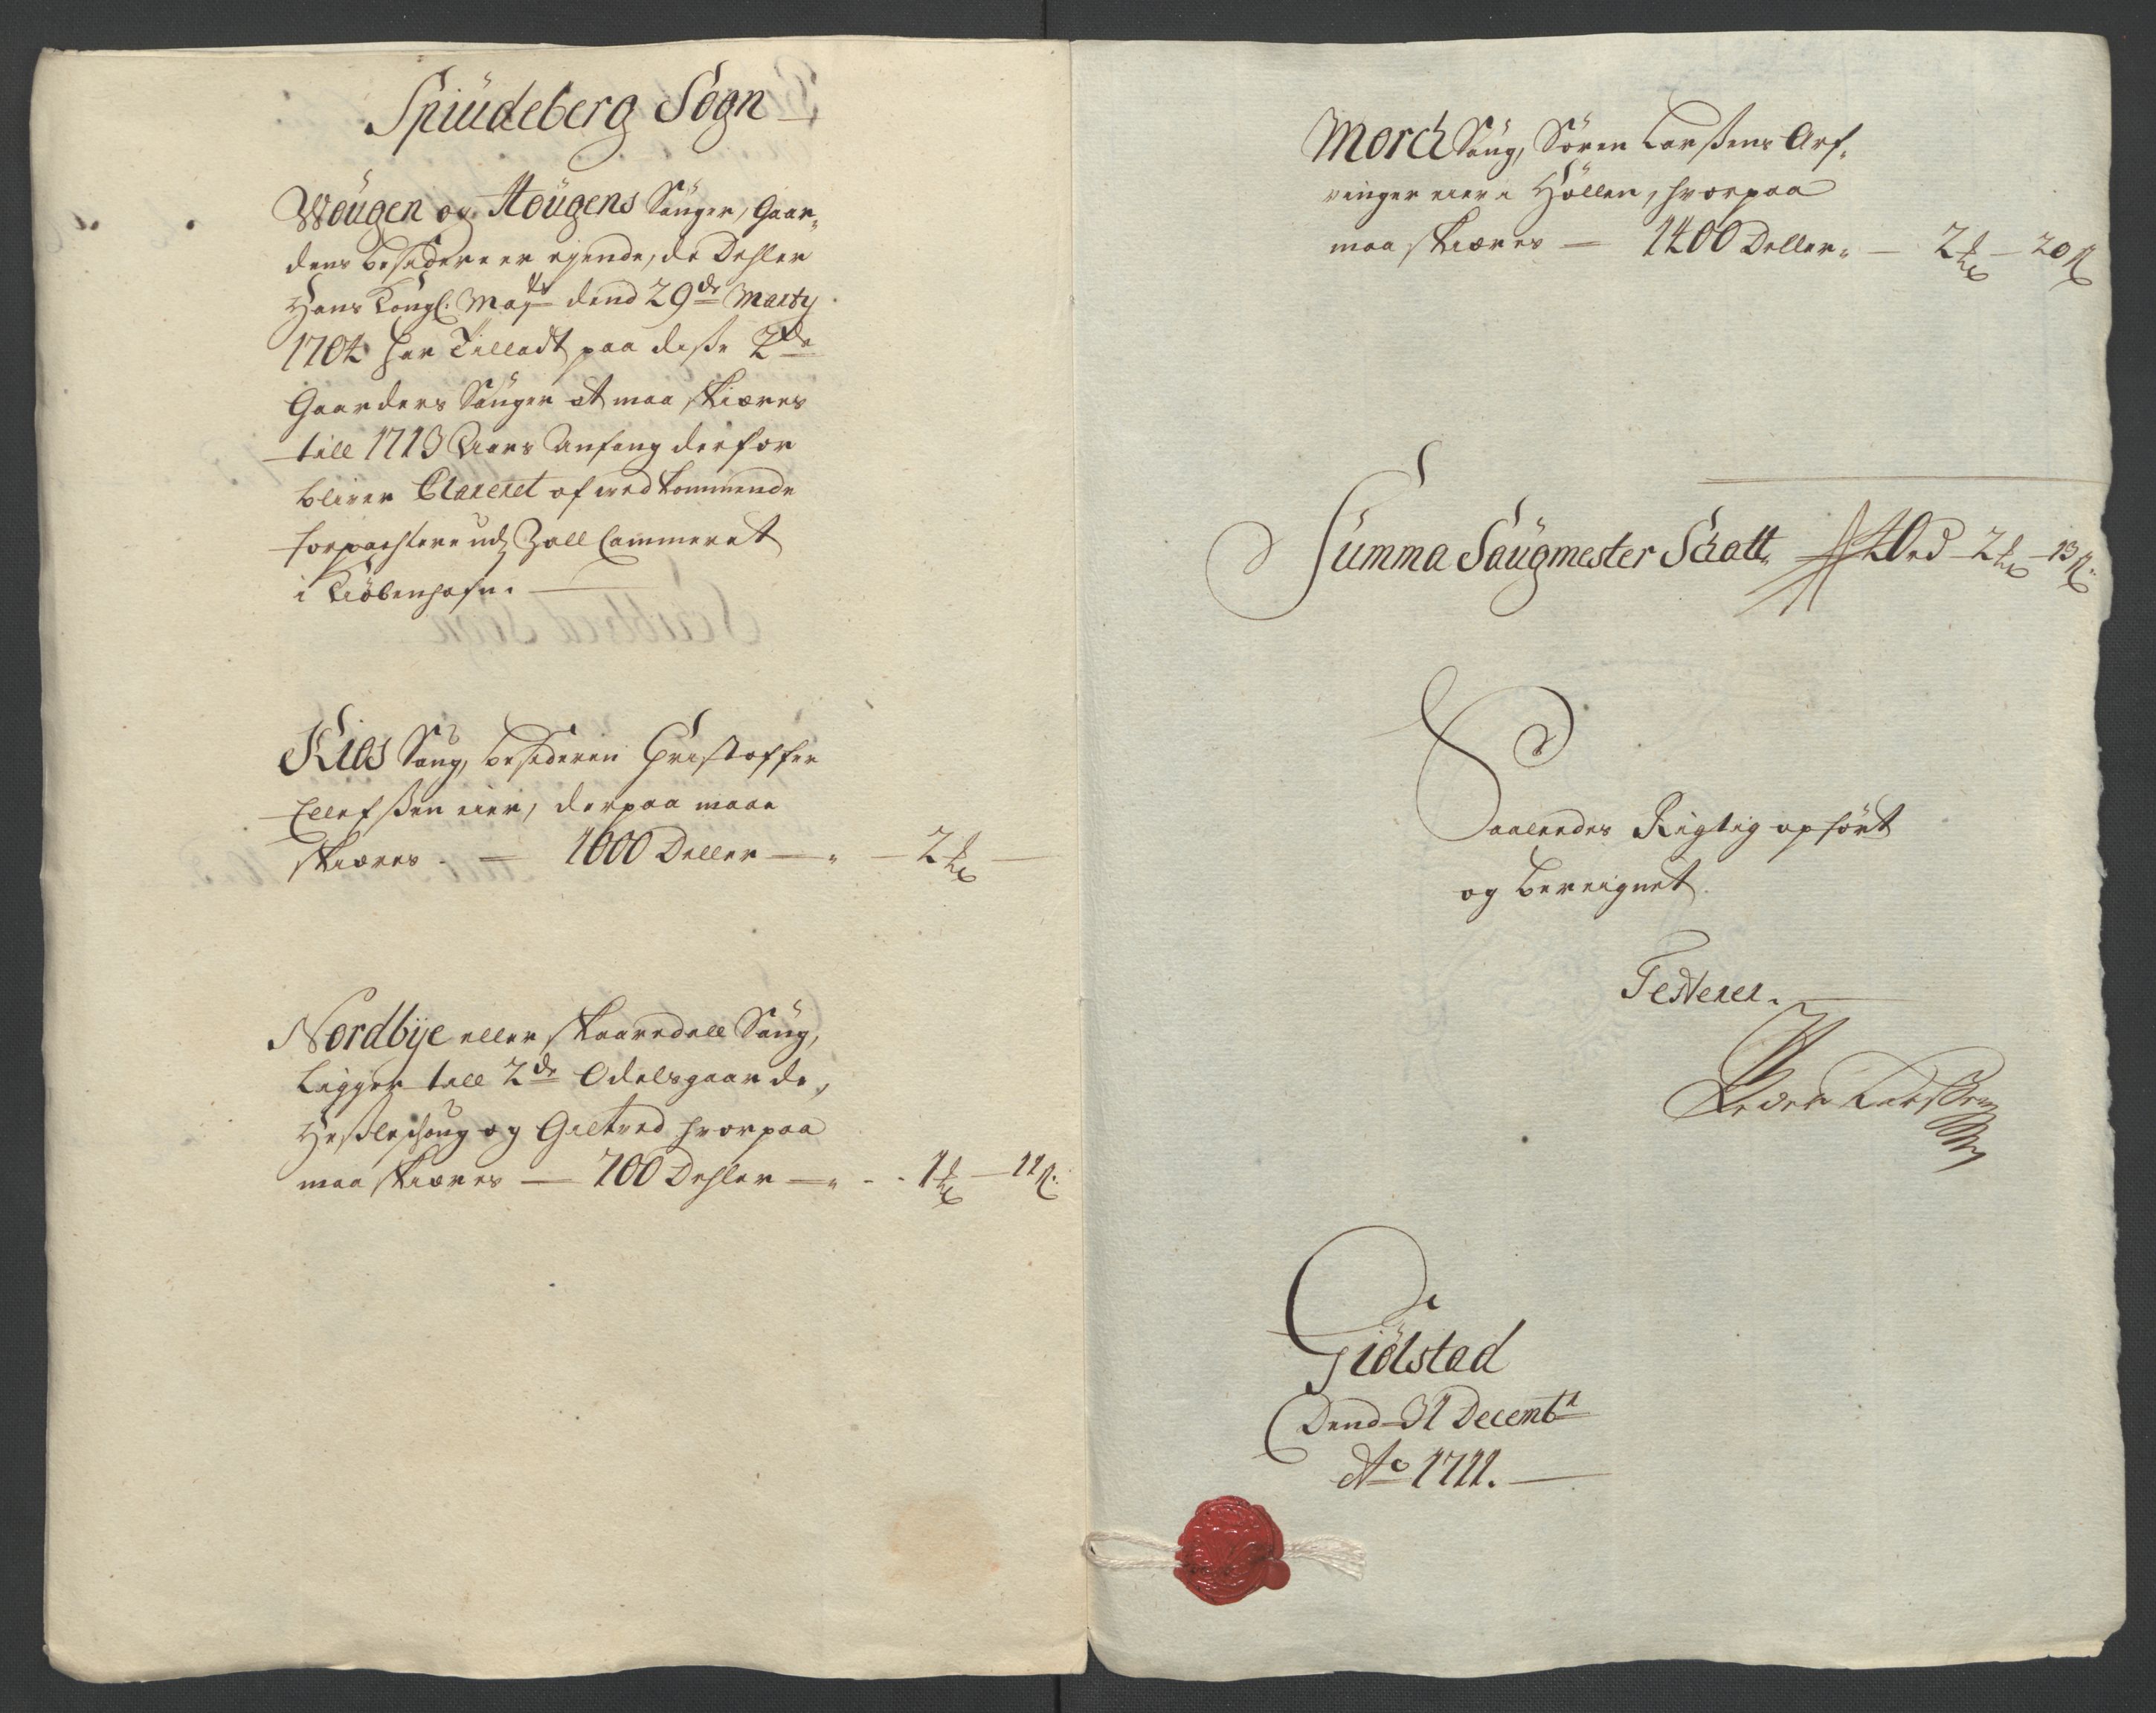 Spiudeberg Sogn
Wougen og Hougens Sauger, Gaar,
dens besidere er ejende, de Dehler
Hans Kongl. Mayts dend 29de Marty
1704 har Tilladt paa disse 2de
Gaarders Sauger at maa skieres
till 1713 Aars Anfang derfor
bliver Clareret af wedkommende
forpachtere udj Zoll Cammeret
i Kiöbenhafn.
Kiös Saug, besideren Christoffer
Ellefsen eier, derpaa maae
skieres. — 1000 Deller — " — 2 rdr —
Nordbye eller Skaaredall Saug,
Ligger till 2de Odelsgaarde,
Hesleschoug og Gretved hvorpaa
maa skieres — 700 Dehler — " - - 1 rdr — 11 s.
Morch Saug, Sören Larssens Arf,
vinger eier i Höllen, hvorpaa
maa skieres — 1400 Deller " — 2 rdr — 20 s
Summa Saugmester Schatt, 2 rdr — 13 s.
Saaledes Rigtig opfört
og bereignet.
Testerer.
Peder Larssen
Giölstad
Dend 31 Decembr
Ao 1711.